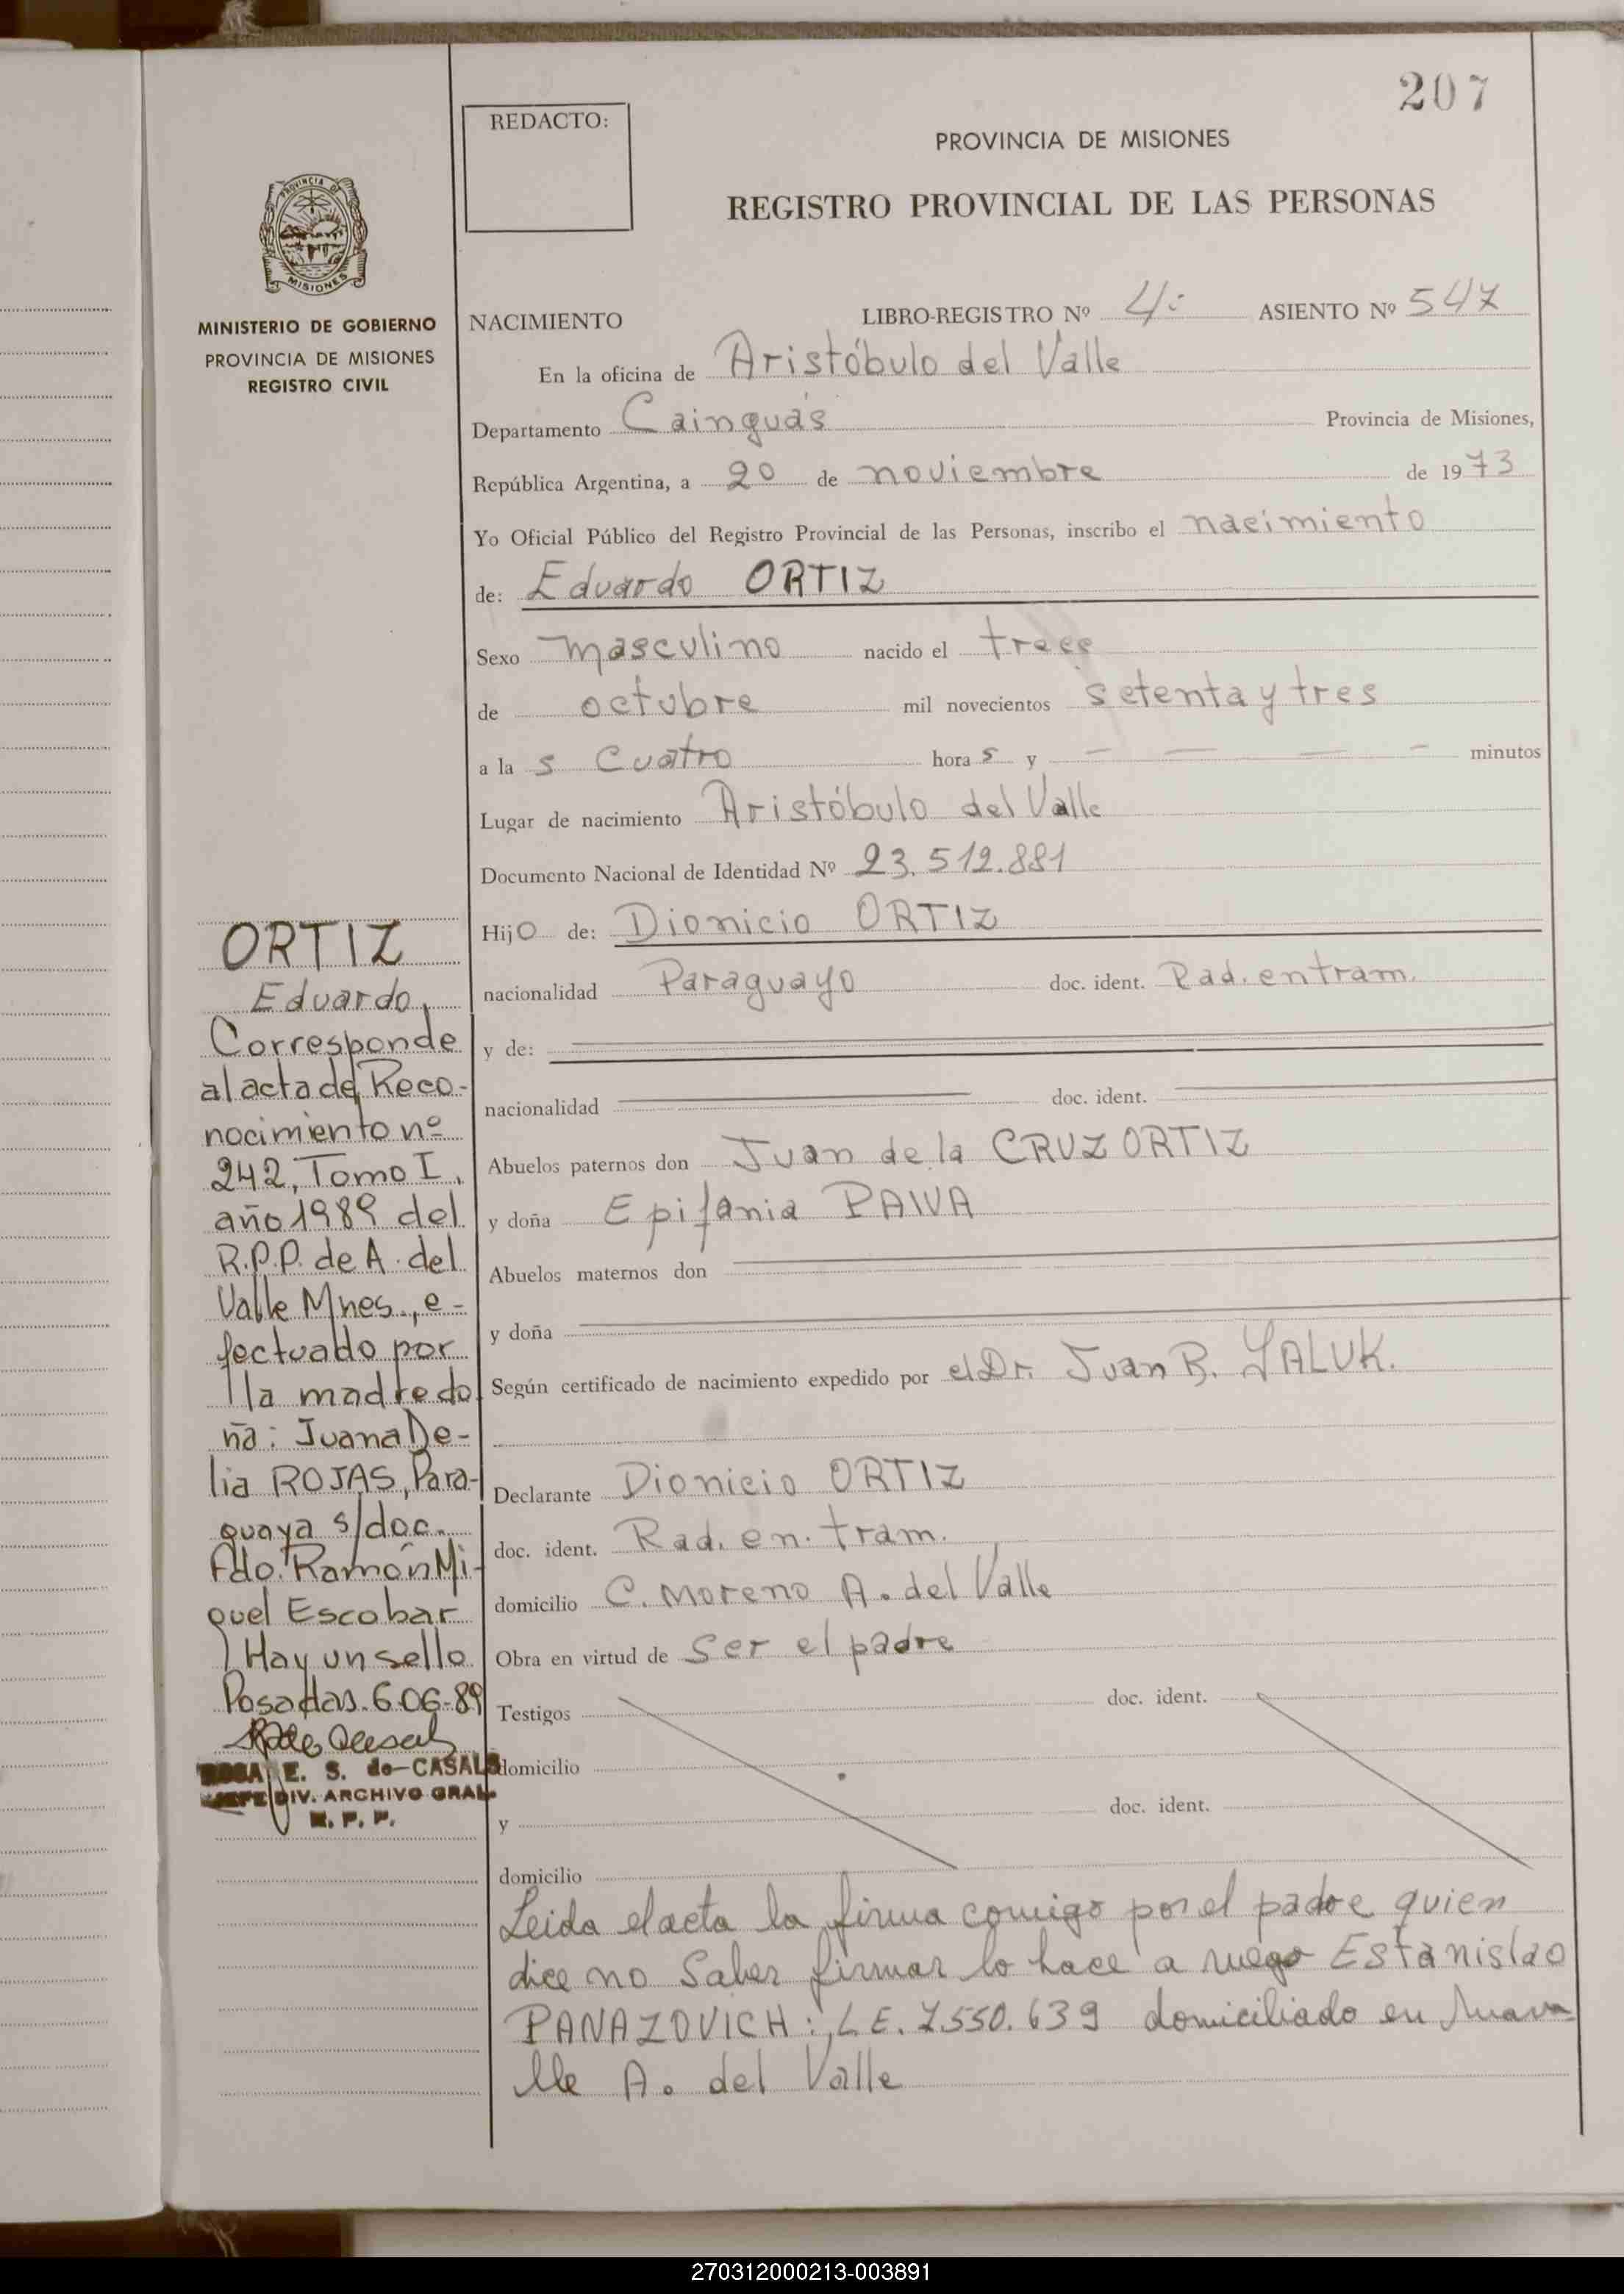 207
REDACTO:
PROVINCIA DE MISIONES
REGISTRO PROVINCIAL DE LAS PERSONAS
PROVINCIA DE
MISIONES
MINISTERIO DE GOBIERNO
PROVINCIA DE MISIONES
REGISTRO CIVIL
NACIMIENTO LIBRO-REGISTRO Nº 4: ASIENTO Nº 547
En la oficina de Aristóbulo del Valle
Departamento Cainguás Provincia de Misiones,
República Argentina, a 20 de noviembre de 1973
Yo Oficial Público del Registro Provincial de las Personas, inscribo el nacimiento
de: Eduardo ORTIZ
Sexo masculino nacido el trece
de octubre mil novecientos setenta y tres
a la s cuatro hora s y — — — — minutos
Lugar de nacimiento Aristóbulo del Valle
Documento Nacional de Identidad Nº 23.512.881
Hijo de: Dionicio ORTIZ
nacionalidad Paraguayo doc. ident. Rad. en tram.
y de:
nacionalidad doc. ident.
Abuelos paternos don Juan de la CRUZ ORTIZ
y doña Epifania PAIVA
Abuelos maternos don
y doña
Según certificado de nacimiento expedido por el Dr. Juan B. YALUK.
Declarante Dionicio ORTIZ
doc. ident. Rad. en. tram.
domicilio C. Moreno A. del Valle
Obra en virtud de ser el padre
Testigos doc. ident.
domicilio
y doc. ident.
domicilio
Leida el acta la firma comigo por el padre quien
dice no saber firmar lo hace a ruego Estanislao
PANAZOVICH: L E. 7.550.639 domiciliado en
A. del Valle
ORTIZ
Eduardo,
Corresponde
al acta de Reco-
nocimiento nº
242, Tomo I,
año 1989 del
R.P.P. de A. del
Valle Mnes., e-
fectuado por
la madre do
ña: Juana De-
lia ROJAS, Para-
guaya s/doc.
Fdo. Ramón Mi-
guel Escobar
Hay un sello
Posadas. 6-06-89
ROSA E. S. de CASALS
JEFE DIV. ARCHIVO GRAL.
R. P. P.
270312000213-003891